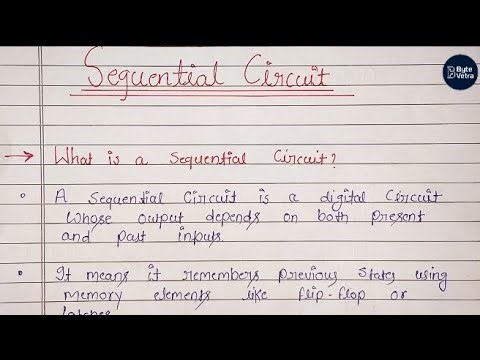 Sequential Circuit
Byte
Vetra
→ What is a Sequential Circuit?
• A Sequential Circuit is a digital Circuit
whose output depends on both present
and past inputs.
• It means it remembers previous states using
memory elements like flip-flop or
latches